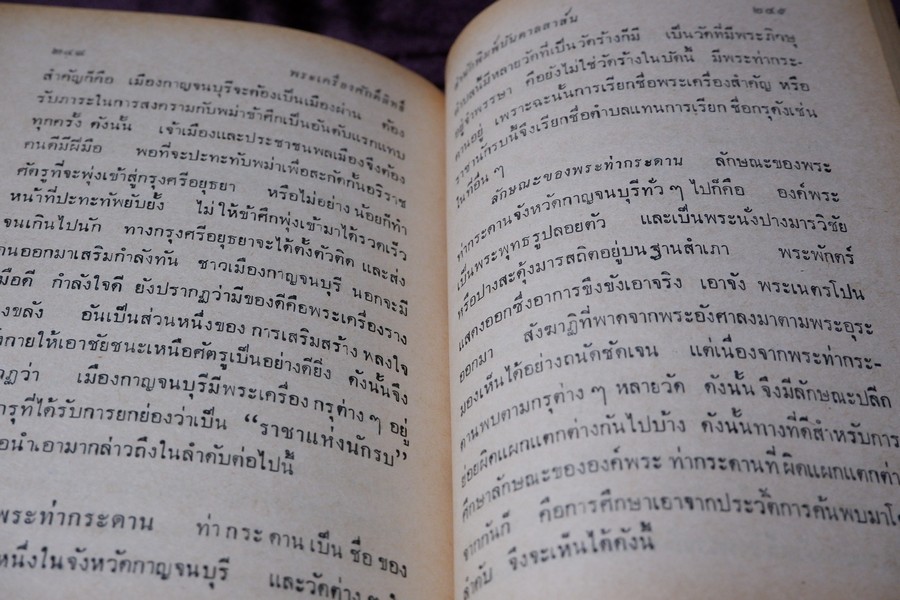 ๒๔๘
พระเครื่องศักดิ์สิทธิ์
สำคัญก็คือ เมืองกาญจนบุรีจะต้องเป็นเมืองผ่าน ต้อง
รับภาระในการสงครามกับพม่าข้าศึกเป็นอันดับแรกแทบ
ทุกครั้ง ดังนั้น เจ้าเมืองและประชาชนพลเมืองจึงต้อง
คนดีมีฝีมือ พอที่จะปะทะทัพพม่าเพื่อสะกัดกั้นอริราช
ศัตรูที่จะพุ่งเข้าสู่กรุงศรีอยุธยา หรือไม่อย่างน้อยก็ทำ
หน้าที่ปะทะทัพยับยั้ง ไม่ให้ข้าศึกพุ่งเข้ามาได้รวดเร็ว
จนเกินไปนัก ทางกรุงศรีอยุธยาจะได้ตั้งตัวติด และส่ง
คนออกมาเสริมกำลังทัน ชาวเมืองกาญจนบุรี นอกจะมี
มือดี กำลังใจดี ยังปรากฏว่ามีของดีคือพระเครื่องราง
งขลัง อันเป็นส่วนหนึ่งของ การเสริมสร้าง พลังใจ
งกายให้เอาชัยชนะเหนือศัตรูเป็นอย่างดียิ่ง ดังนั้นจึง
ฏว่า เมืองกาญจนบุรีมีพระเครื่อง กรุต่าง ๆ อยู่
กรุที่ได้รับการยกย่องว่าเป็น “ราชาแห่งนักรบ”
อนำเอามากล่าวถึงในลำดับต่อไปนี้
พระท่ากระดาน ท่า กระ ดาน เป็น ชื่อ ของ
หนึ่งในจังหวัดกาญจนบุรี และวัดต่าง ๆ ใน
๒๔๙
สำนักพิมพ์บันดาลสาส์น
ตำบลนี้มีหลายวัดที่เป็นวัดร้างก็มี เป็นวัดที่มีพระภิกษุ
อยู่จำพรรษา คือยังไม่ใช่วัดร้างในบัดนี้ มีพระท่ากระ-
ดานอยู่ เพราะฉะนั้นการเรียกชื่อพระเครื่องสำคัญ หรือ
ราชานักรบนี้จึงเรียกชื่อตำบลแทนการเรียก ชื่อกรุดังเช่น
ในที่อื่น ๆ
ลักษณะของพระท่ากระดาน ลักษณะของพระ
ท่ากระดานจังหวัดกาญจนบุรีทั่ว ๆ ไปก็คือ องค์พระ
เป็นพระพุทธรูปลอยตัว และเป็นพระนั่งปางมารวิชัย
หรือปางสะดุ้งมารสถิตอยู่บนฐานสำเภา พระพักตร์
แสดงออกซึ่งอาการขึงขังเอาจริง เอาจัง พระเนตรโปน
ออกมา สังฆาฏิที่พาดจากพระอังศาลงมาตามพระอุระ
มองเห็นได้อย่างถนัดชัดเจน แต่เนื่องจากพระท่ากระ-
ดานพบตามกรุต่าง ๆ หลายวัด ดังนั้น จึงมีลักษณะปลีก
ย่อยผิดแผกแตกต่างกันไปบ้าง ดังนั้นทางที่ดีสำหรับการ
ศึกษาลักษณะขององค์พระ ท่ากระดานที่ ผิดแผกแตกต่า
จากกันก็ คือการศึกษาเอาจากประวัติการค้นพบมาโด
ลำดับ จึงจะเห็นได้ดังนี้